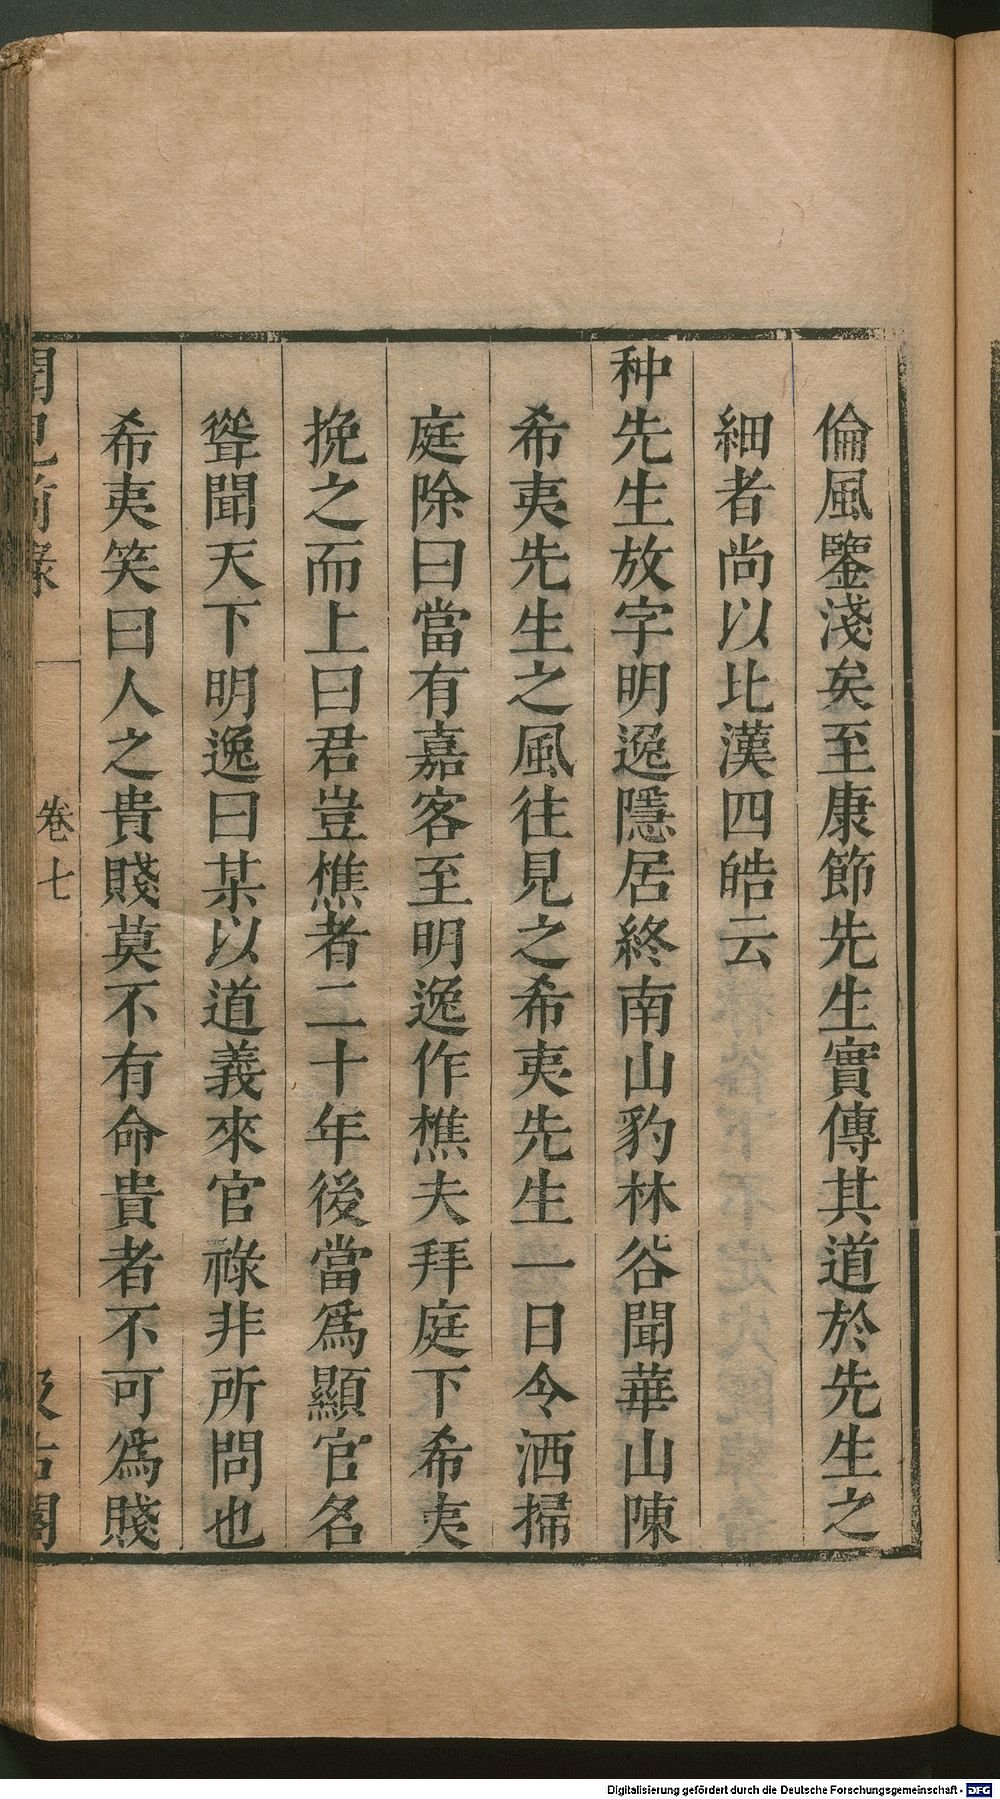 倫風鑒淺矣至康節先生實傳其道於先生之
細者尚以比漢四皓云
种先生放字明逸隱居終南山豹林谷聞華山陳
希夷先生之風往見之希夷先生一日令洒掃
庭除曰當有嘉客至明逸作樵夫拜庭下希夷
挽之而上曰君豈樵者二十年後當爲顯官名
聳聞天下明逸曰某以道義來官祿非所問也
希夷笑曰人之貴賤莫不有命貴者不可爲賤
聞見前錄
卷七
汲古閣
Digitalisierung gefördert durch die Deutsche Forschungsgemeinschaft - DFG